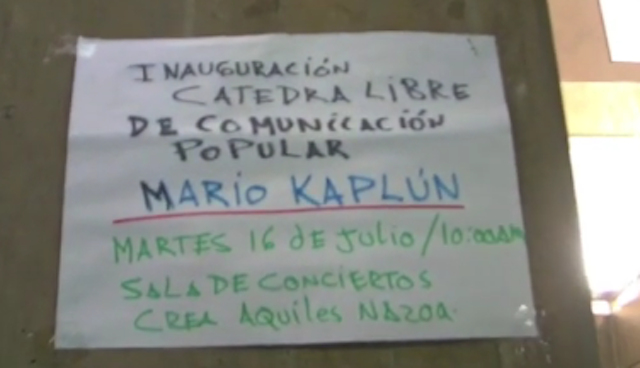 INAUGURACIÓN
CATEDRA LIBRE
DE COMUNICACIÓN
POPULAR
MARIO KAPLÚN
MARTES 16 DE JULIO / 10:00AM
SALA DE CONCIERTOS
CREA AQUILES NAZOA.